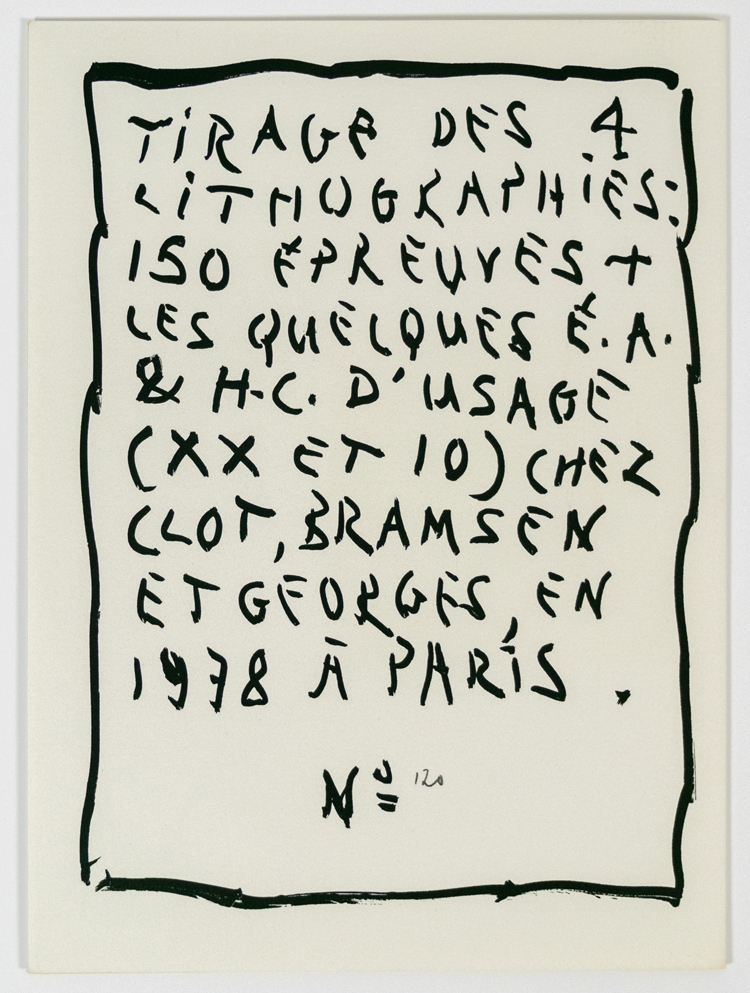 TIRAGE DES 4
LITHOGRAPHIES:
150 ÉPREUVES +
LES QUELQUES É.A.
& H.C. D'USAGE
(XX ET 10) CHEZ
CLOT, BRAMSEN
ET GEORGES, EN
1978 À PARIS.
Nº 120